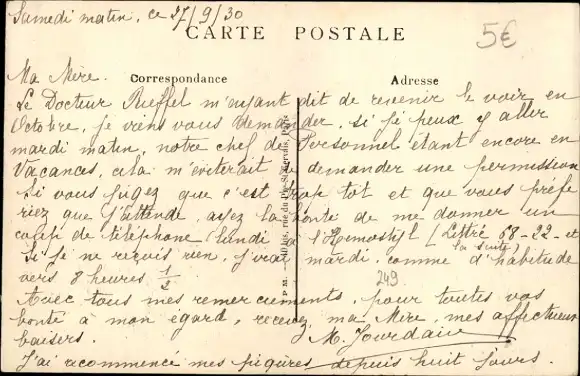 Samedi matin, ce 27/9/30
CARTE POSTALE
5€
Correspondance
Adresse
Ma Mère.
Le Docteur Rieffel m'ayant dit de revenir le voir en
Octobre, je viens vous demander, si je peux y aller
mardi matin, notre chef de Personnel étant encore en
Vacances, cela m'éviterait de demander une permission
Si vous jugez que c'est trop tôt et que vous préfé
riez que j'attende, ayez la bonté de me donner un
coup de téléphone lundi à l'Hemostyl (Littré 68-22 et
la suite)
Si je ne reçois rien, j'irai mardi, comme d'habitude
vers 8 heures 1/2
249
Avec tous mes remerciements, pour toutes vos
bonté à mon égard, recevez, ma Mère, mes affectueux
baisers.
M. Jourdain
J'ai recommencé mes piqûres depuis huit jours.